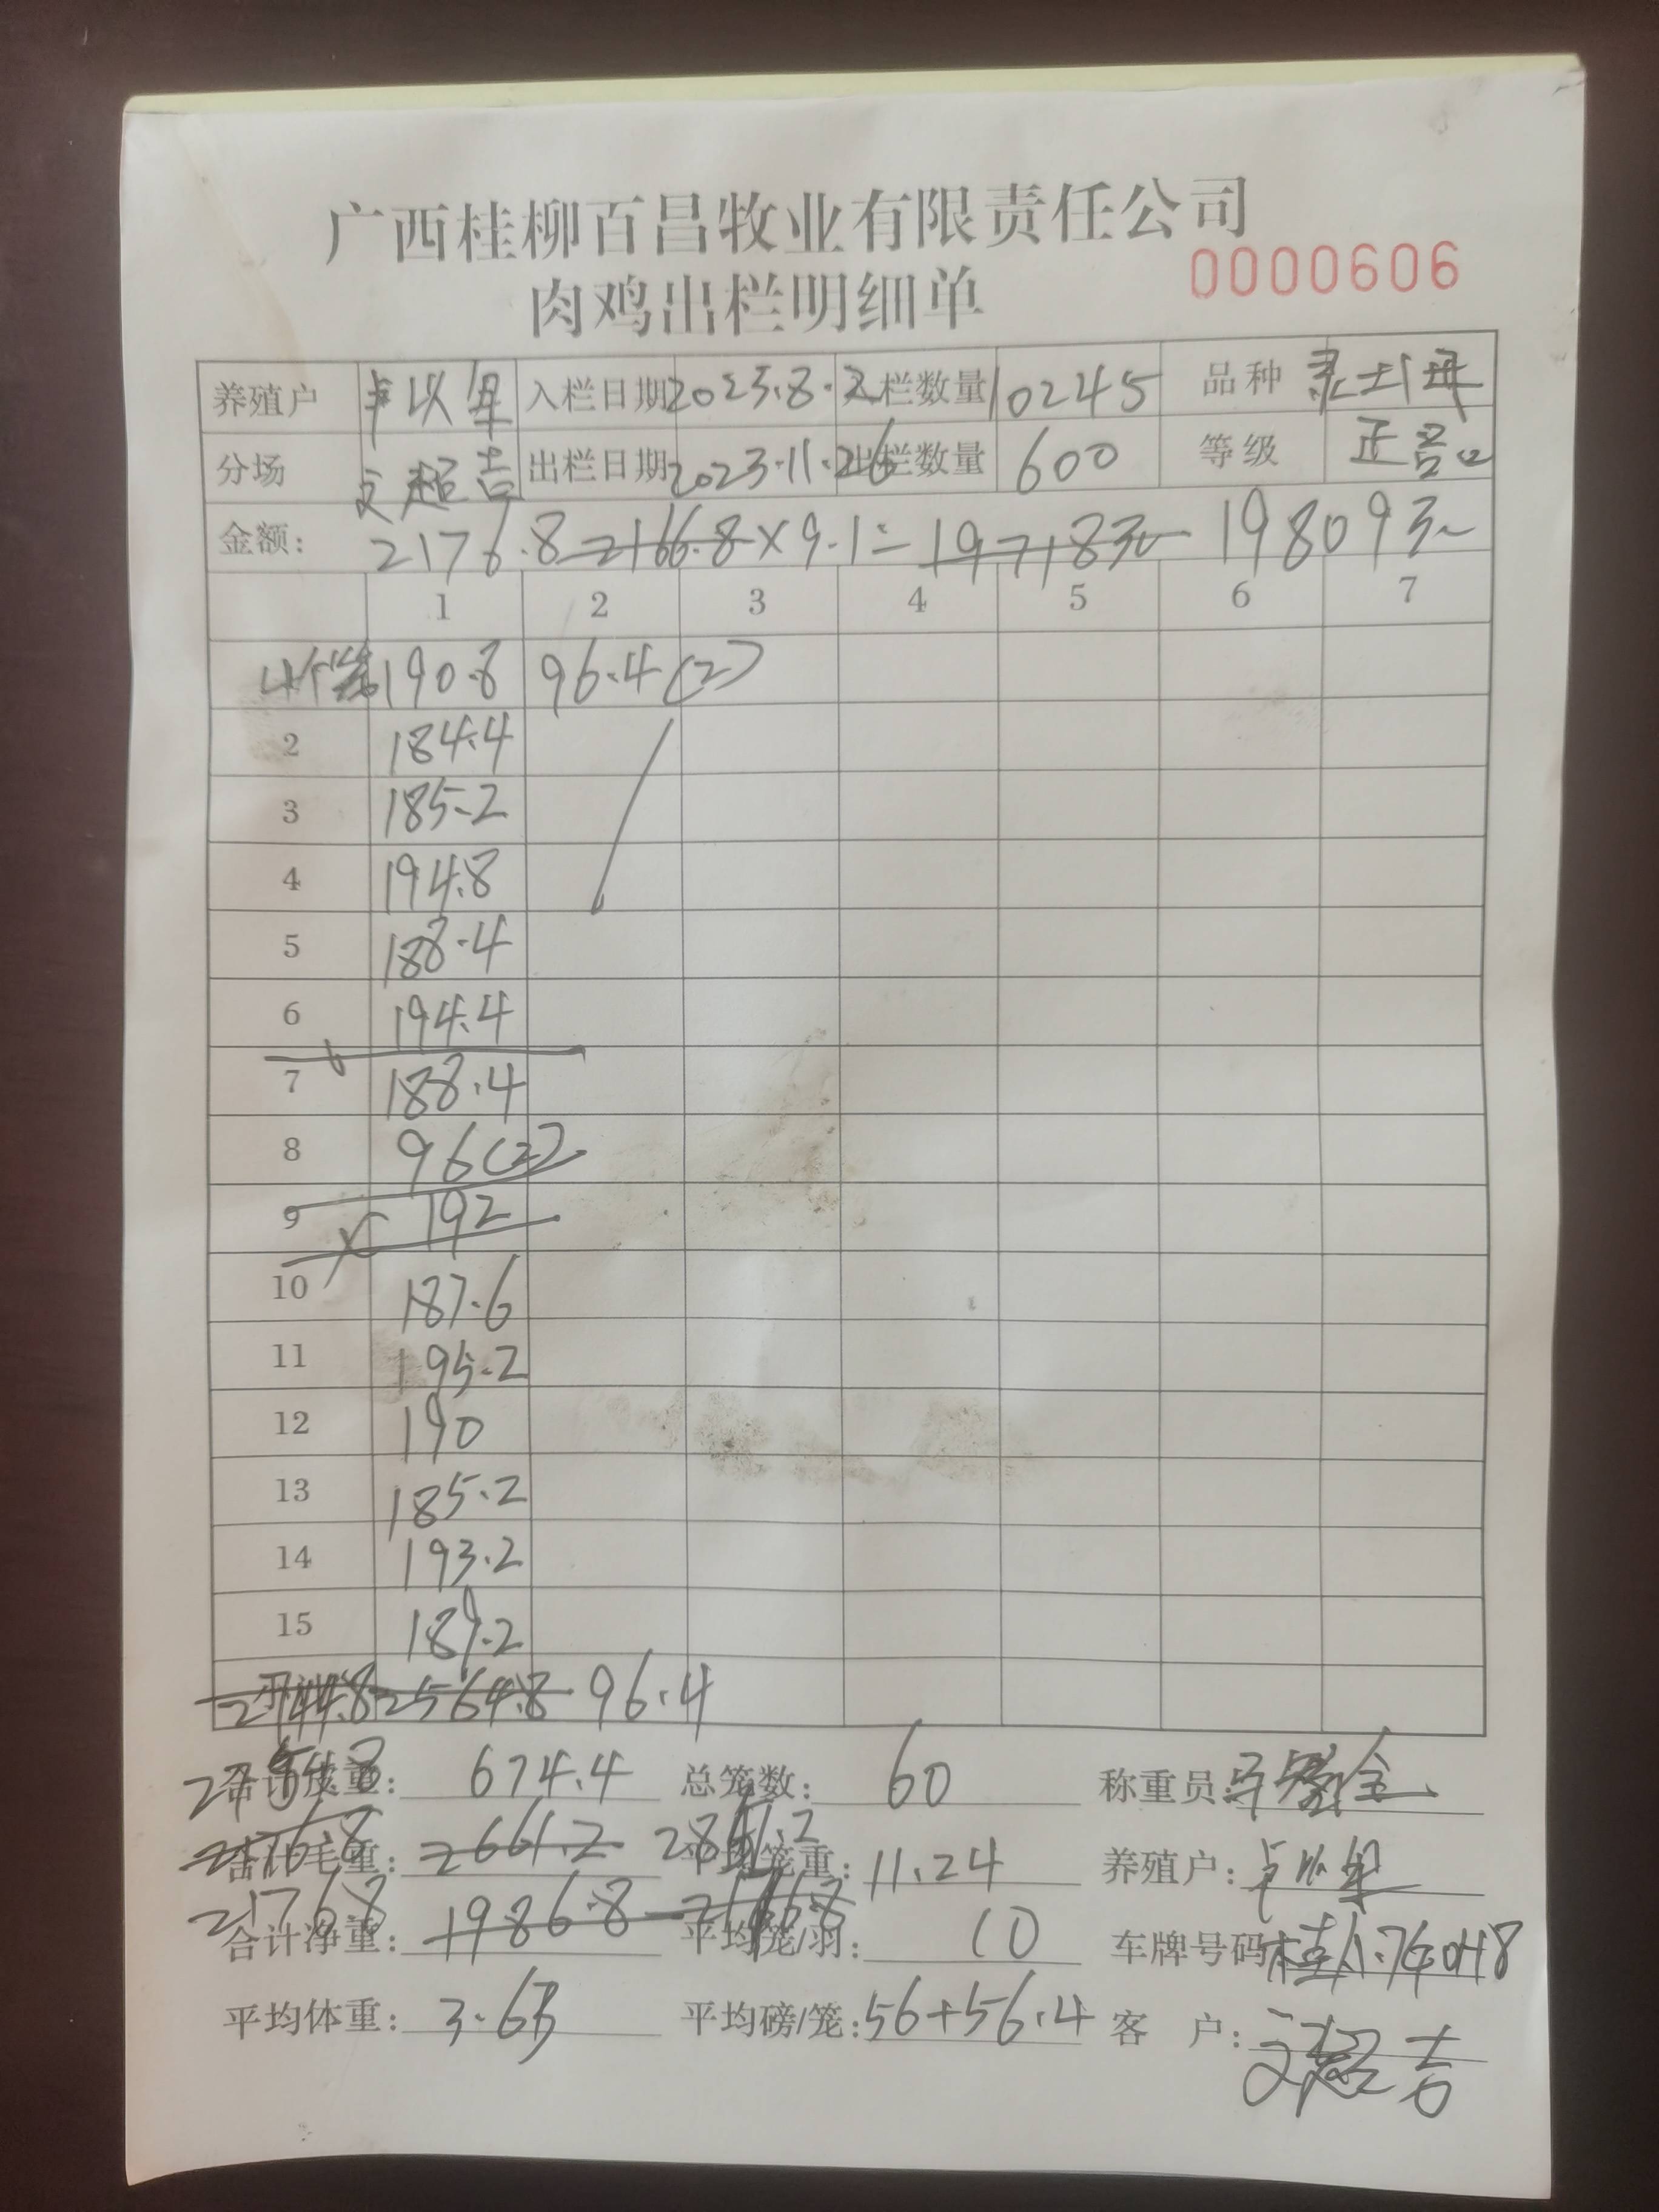 广西桂柳百昌牧业有限责任公司
肉鸡出栏明细单 0000606
养殖户 卢以军 入栏日期 2023.8.2 入栏数量 10245 品种
分场 文超吉 出栏日期 2023.11.26 出栏数量 600 等级 正品
金额: 2176.8 2166.8×9.1= 19718元 19809元
1 2 3 4 5 6 7
4个笼 190.8 96.4(2)
2 184.4
3 185.2
4 194.8
5 188.4
6 194.4
7 188.4
8 96(2)
9 192
10 187.6
11 195.2
12 190
13 185.2
14 193.2
15 189.2
小计 2744.8 2564.8 96.4
合计皮重: 674.4 总笼数: 60 称重员:
合计毛重: 2661.2 2851.2 平均笼重: 11.24 养殖户: 卢以军
2176.8
合计净重: 1986.8 2166.8 平均笼/羽: 10 车牌号码
平均体重: 3.63 平均磅/笼: 56+56.4 客 户: 文超吉